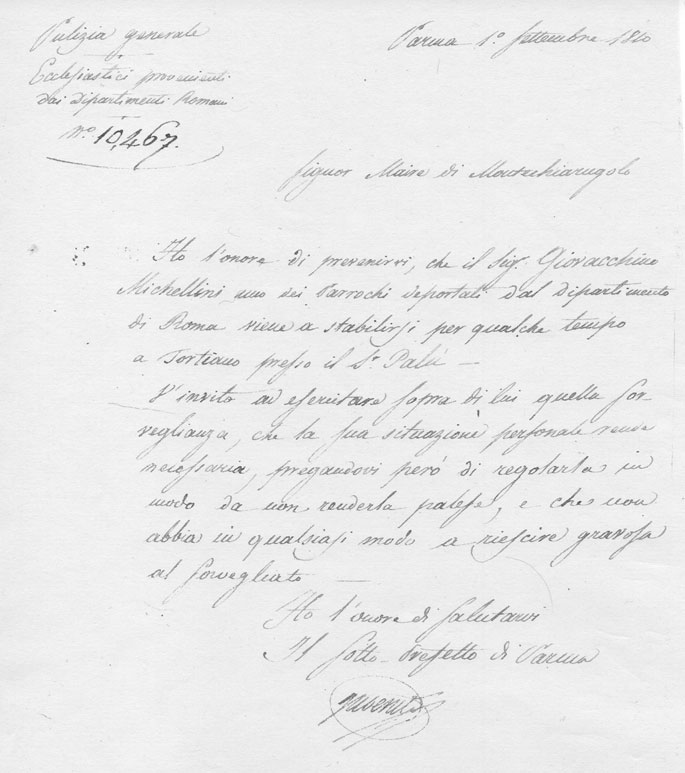 Pulizia generale
Parma 1.º Settembre 1810
Ecclesiastici provenienti
dai Dipartimenti Romani
Nº. 10,467.
Signor Maire di Montechiarugolo
Ho l'onore di prevenirvi, che il Sig.r Giovacchino
Michellini uno dei Parrochi deportati dal Dipartimento
di Roma viene a stabilirsi per qualche tempo
a Tortiano presso il S.r Palù —
V'invito ad esercitare sopra di lui quella sor-
veglianza, che la sua situazione personale rende
necessaria, pregandovi però di regolarla in
modo da non renderla palese, e che non
abbia in qualsiasi modo a riescire gravosa
al Sorvegliato —
Ho l'onore di Salutarvi
Il Sotto-Prefetto di Parma